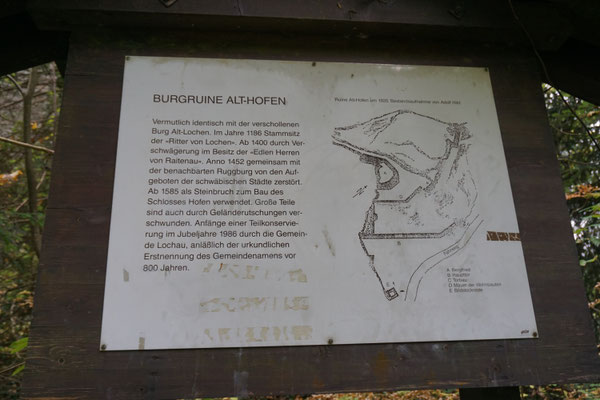 BURGRUINE ALT-HOFEN
Vermutlich identisch mit der verschollenen
Burg Alt-Lochen. Im Jahre 1186 Stammsitz
der «Ritter von Lochen». Ab 1400 durch Ver-
schwägerung im Besitz der «Edlen Herren
von Raitenau». Anno 1452 gemeinsam mit
der benachbarten Ruggburg von den Auf-
geboten der schwäbischen Städte zerstört.
Ab 1585 als Steinbruch zum Bau des
Schlosses Hofen verwendet. Große Teile
sind auch durch Geländerutschungen ver-
schwunden. Anfänge einer Teilkonservie-
rung im Jubeljahre 1986 durch die Gemein-
de Lochau, anläßlich der urkundlichen
Erstnennung des Gemeindenamens vor
800 Jahren.
Ruine Althofen um